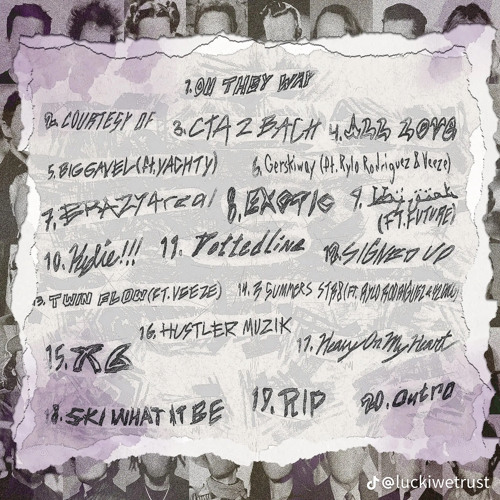 1. ON THEY WAY
2. COURTESY OF 3. CTA 2 BACH 4. ALL LOVE
5. BIGGAVEL (ft. YACHTY) 6. Gerskiway (ft. Rylo Rodriguez & Veeze)
7. BRAZY4real 8. EXOTIC 9. (FT. FUTURE)
10. Kylie!!! 11. Dottedline 12. SIGNED UP
13. TWIN FLOW (FT. VEEZE) 14. 3 SUMMERS STR8 (ft. RYLO RODRIGUEZ &
16. HUSTLER MUZIK
15. 17. Heavy On My Heart
18. SKI WHAT IT BE 19. RIP 20. Outro
@luckiwetrust